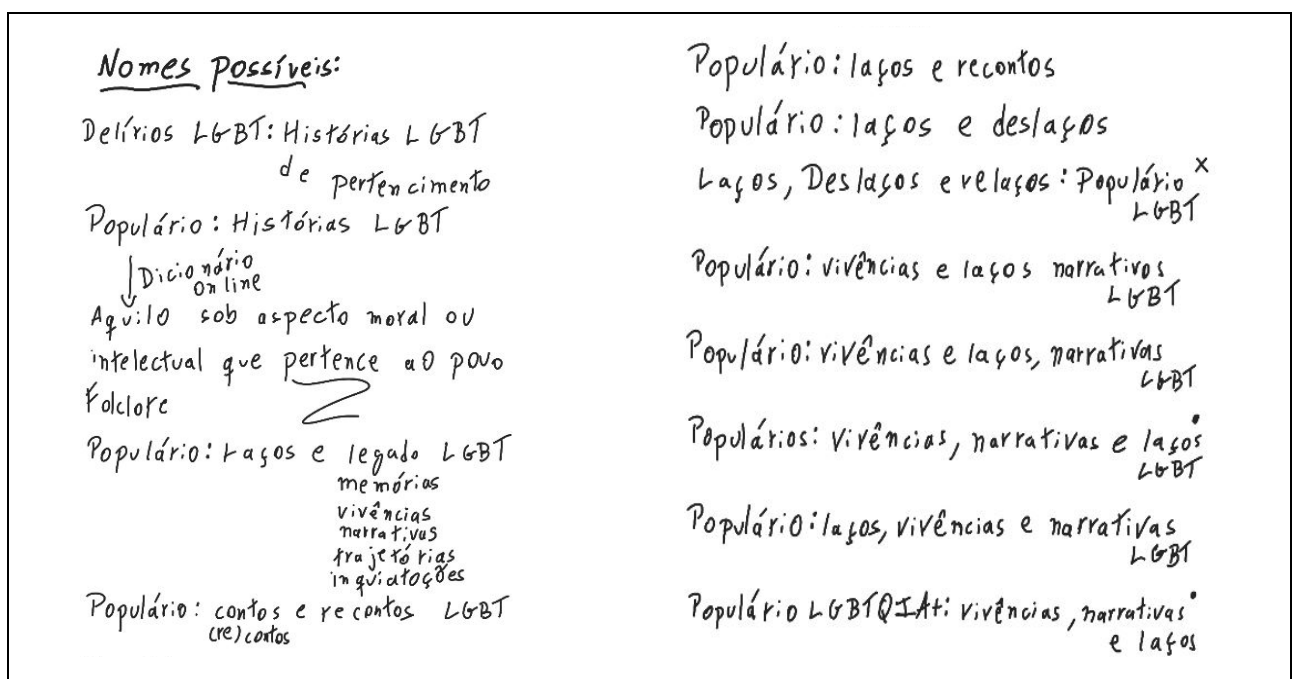 Nomes possíveis:
Delírios LGBT: Histórias LGBT
de pertencimento
Populário: Histórias LGBT
Dicionário
online
Aquilo sob aspecto moral ou
intelectual que pertence ao povo
Folclore
Populário: Laços e legado LGBT
memórias
vivências
narrativas
trajetórias
inquiatações
Populário: contos e recontos LGBT
(re)contos
Populário: laços e recontos
Populário: laços e deslaços
Laços, Deslaços e relaços: Populário x
LGBT
Populário: vivências e laços narrativos
LGBT
Populário: vivências e laços, narrativas
LGBT
Populários: vivências, narrativas e laços
LGBT
Populário: laços, vivências e narrativas
LGBT
Populário LGBTQIA+: vivências, narrativas
e laços